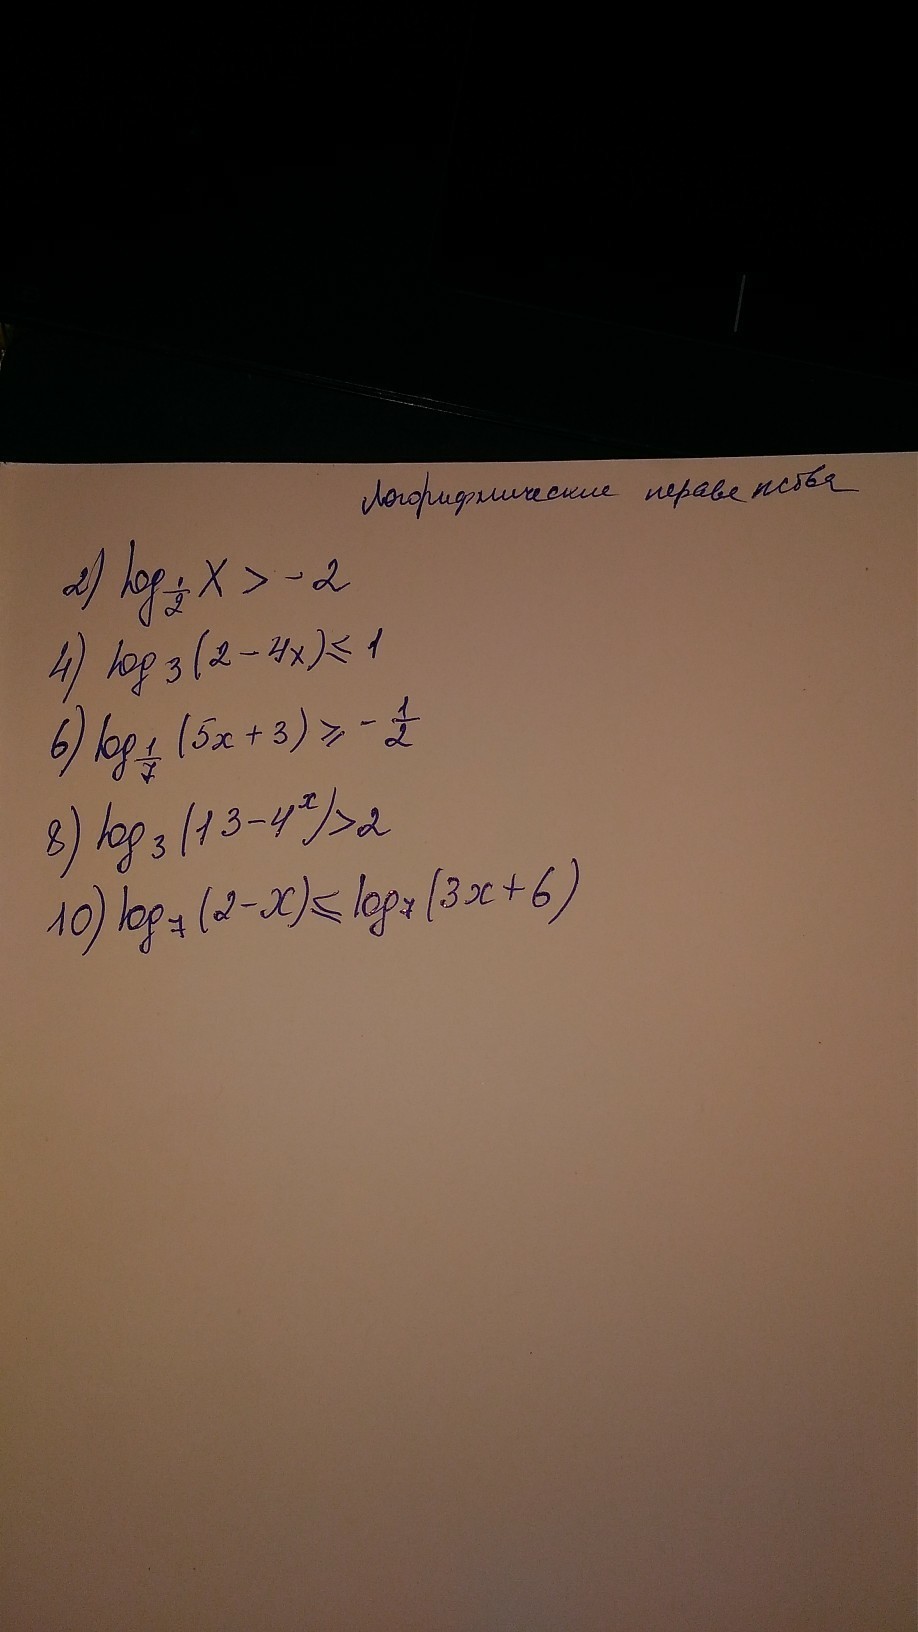 Логорифмические неравенства
2) log_{1/2} X > -2
4) log_3 (2-4x) ≤ 1
6) log_{1/7} (5x+3) ≥ -1/2
8) log_3 (13-4^x) > 2
10) log_7 (2-x) ≤ log_7 (3x+6)